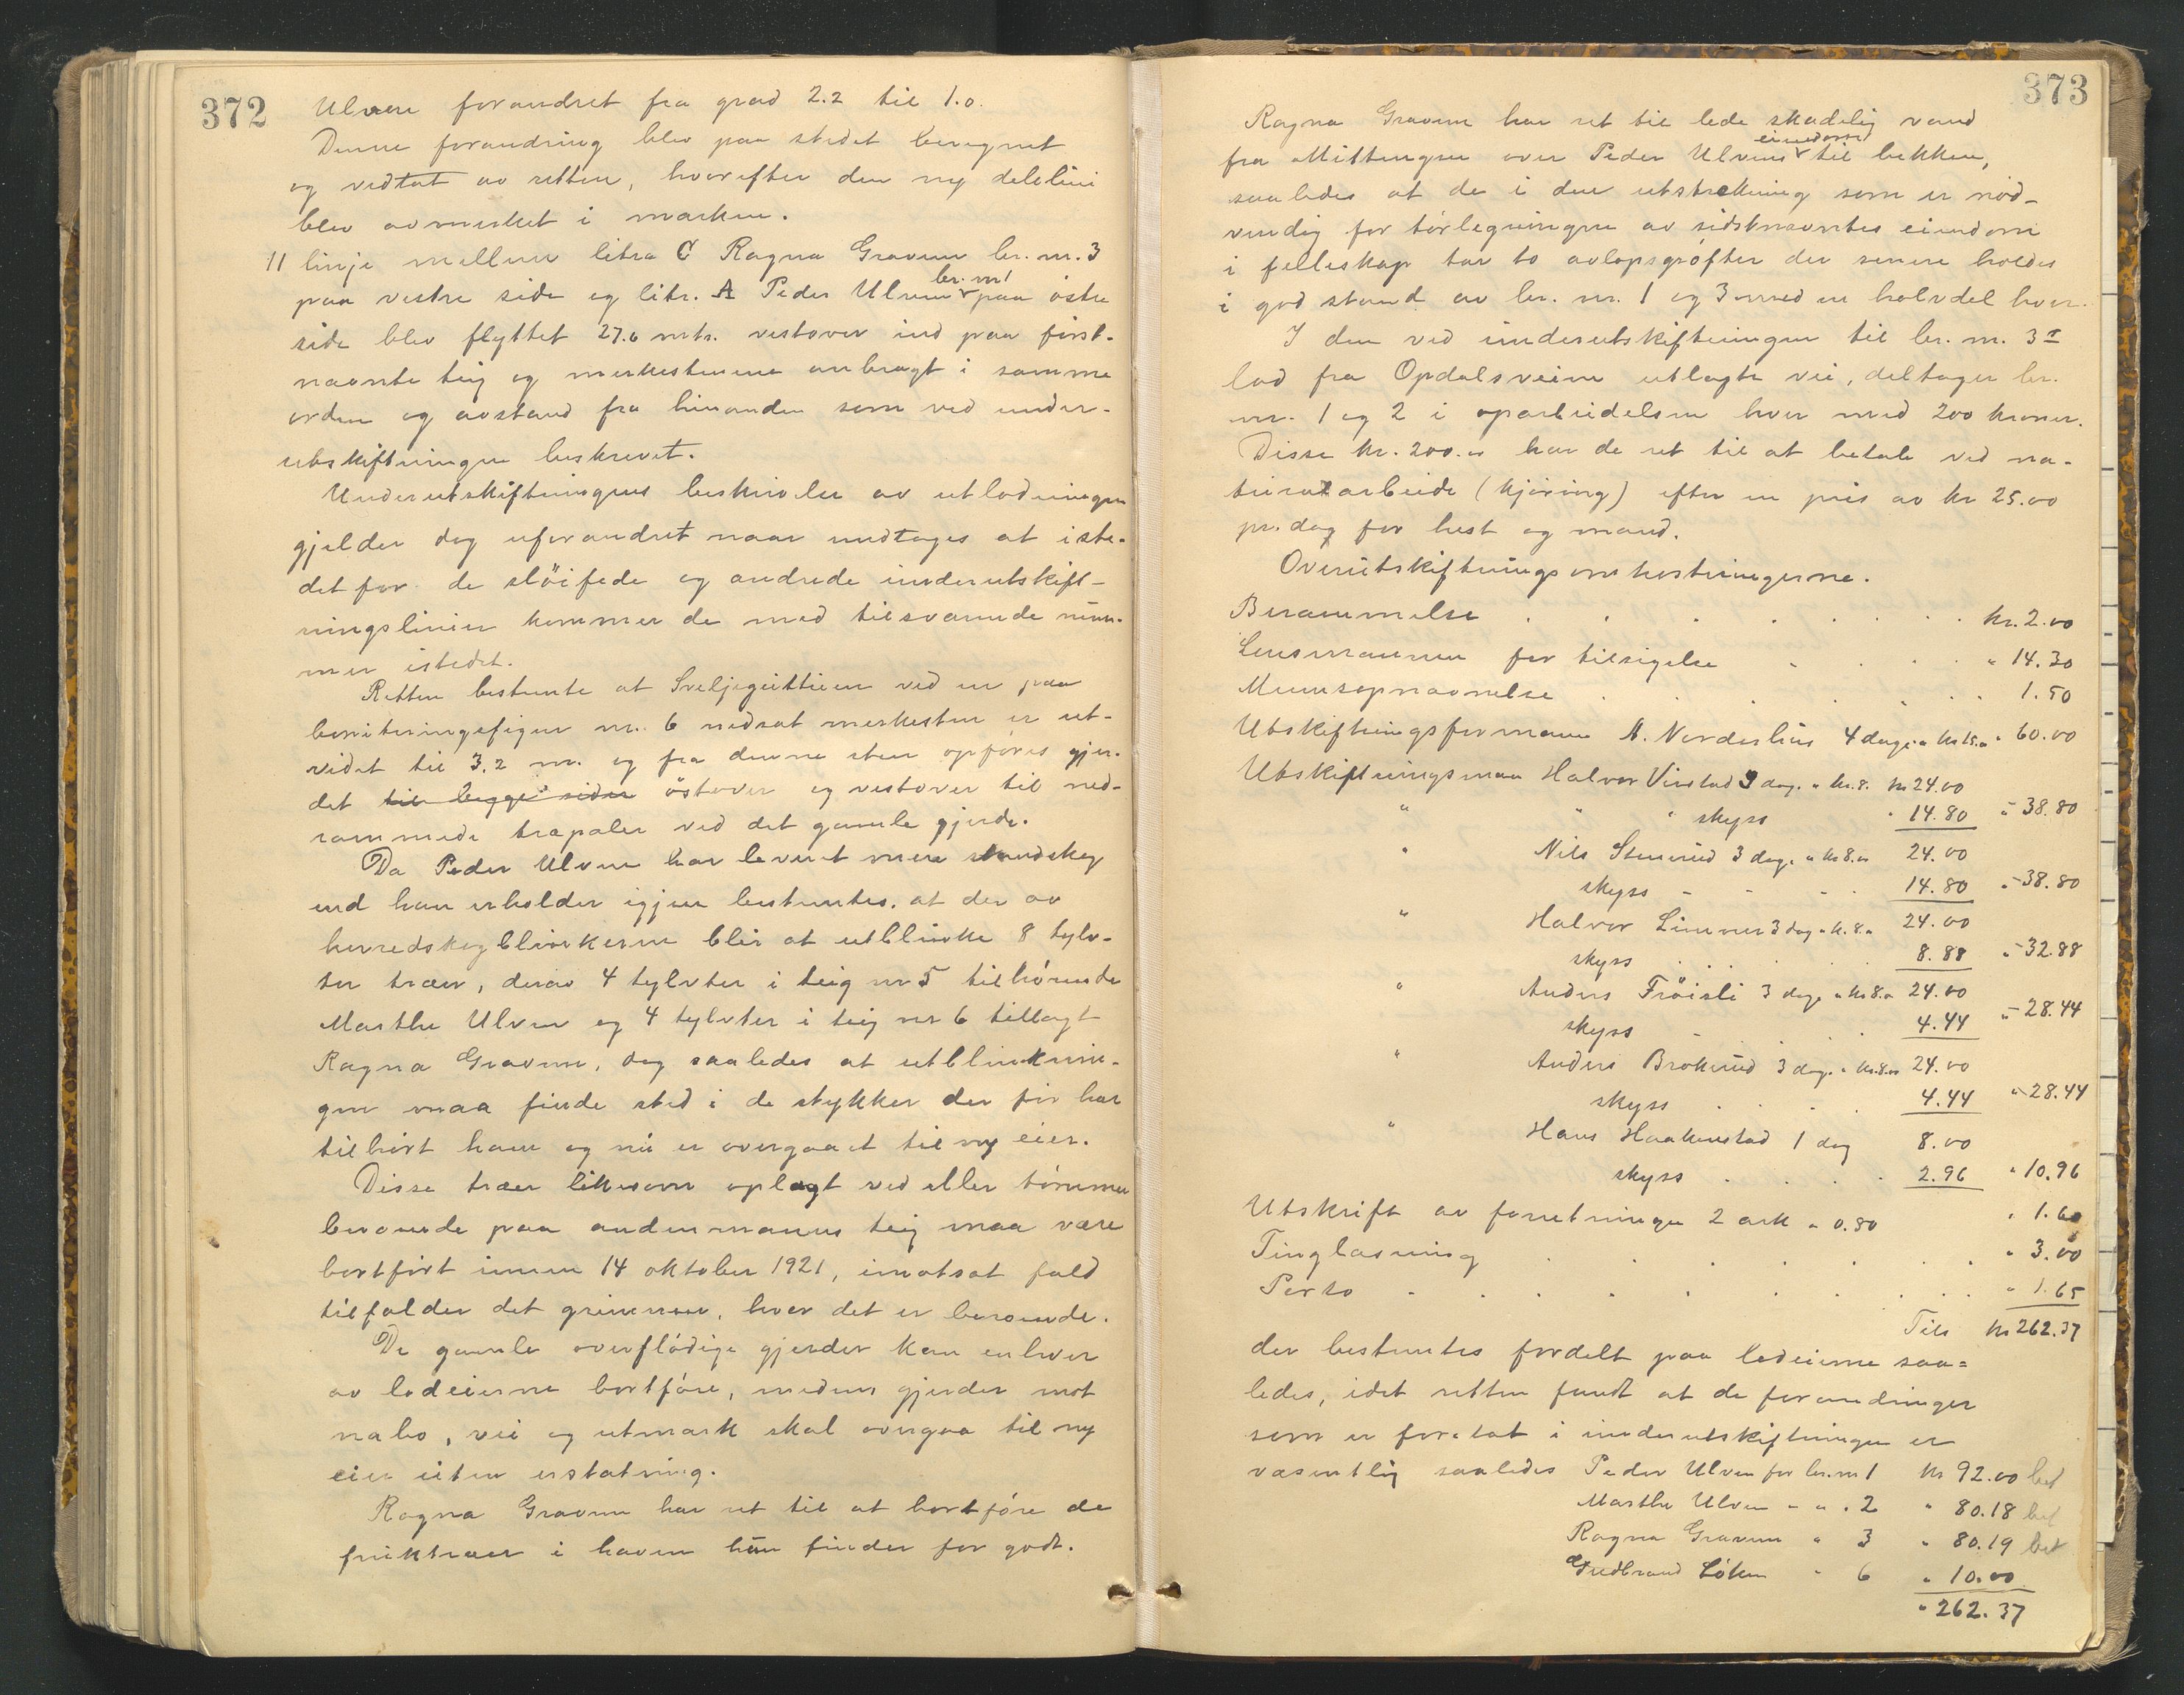 372
Ulven forandret fra grad 2.2 til 1.0.
Denne forandring blev paa stedet beregnet
og vedtat av retten, hvorefter den ny delelini
blev avmerket i marken.
11 linje mellem litra C Ragna Graven br. nr. 3
paa vestre side og litr. A Peder Ulven br. nr 1 paa östre
side blev flyttet 27.6 mtr. vestover ind paa först-
nævnte teig og merkestenene anbragt i samme
orden og avstand fra hinanden som ved under-
utskiftningen beskrevet.
Underutskiftningens beskrivelse av utlodningen
gjelder dog uforandret naar undtages at iste-
det for de slöifede og andrede underutskift-
ningslinier kommer de med tilsvarende num-
mer istedet.
Retten bestemte at Sveljegutticen ved en paa
boniteringsfigur nr. 6 nedsat merkesten er ut-
videt til 3.2 m. og fra denne sten opföres gjer-
det til begge sider östover og vestover til ned-
rammede træpæler ved det gamle gjerde.
Da Peder Ulven har levert mere standskog
end han erholder igjen bestemtes, at der av
herredskogblinkerne blir at utblinke 8 tylv-
ter trær, derav 4 tylvter i teig nr 5 tilhörende
Marthe Ulven og 4 tylvter i teig nr 6 tillagt
Ragna Graven, dog saaledes at utblinknin-
gen maa finde sted i de stykker der för har
tilhört ham og nu er overgaaet til ny eier.
Disse trær likesom oplagt ved eller tömmer
beroende paa andenmanns teig maa være
bortfört innen 14 oktober 1921, imotsat fald
tilfalder det grunnen, hvor det er beroende.
De gamle overflödige gjerder kan enhver
av lodeierne bortföre, medens gjerder mot
nabo, vei og utmark skal overgaa til ny
eier uten erstatning.
Ragna Graven har ret til at bortföre de
frukttrær i haven hun finder for godt.
373
Ragna Graven har ret til lede skadelig vand
fra Mittengen over Peder Ulvens eiendom til bekken,
saaledes at de i den utstrekning som er nöd-
vendig for törlegningen av sidstnævntes eiendom
i felleskap tar to avlöpsgröfter der senere holdes
i god stand av br. nr. 1 og 3 med en halvdel hver.
I den ved underutskiftningen til br. nr. 3s
lod fra Opdalsveien utlagte vei, deltager br.
nr. 1 og 2 i oparbeidelsen hver med 200 kroner.
Disse kr. 200.00 har de ret til at betale ved na-
turalarbeide (kjöring) efter en pris av kr 25.00
pr. dag for hest og mand.
Overutskiftningsomkostningerne.
Berammelse kr. 2.00
Lensmannen for tilsigelse " 14.30
Mennsopnævnelse 1.50
Utskiftningsformann A. Norderhus 4 dage a kr 15.00 " 60.00
Utskiftningsmann Halvor Vinstad 3 dag. a kr. 8. kr 24.00
" " " skyss " 14.80 " 38.80
" Nils Stenerud 3 dag. a kr 8.00 24.00
skyss 14.80 " 38.80
" Halvor Linnes 3 dag a kr. 8.00 24.00
skyss 8.88 " 32.88
" Anders Fröisli 3 dage a kr 8.00 24.00
skyss 4.44 " 28.44
" Anders Brökerud 3 dag. a kr. 8.00 24.00
skyss 4.44 " 28.44
" Hans Haakenstad 1 dag 8.00
skyss 2.96 " 10.96
Utskrift av forretningen 2 ark a 0.80 " 1.60
Tinglæsning " 3.00
Porto " 1.65
Tils kr 262.37
der bestemtes fordelt paa lodeierne saa=
ledes, idet retten fandt at de forandringer
som er foretat i underutskiftningen er
væsentlig saaledes Peder Ulven for br. nr 1 kr 92.00 bet
Marthe Ulven " " " 2 " 80.18 bet
Ragna Graven " 3 " 80.19 bet
Gudbrand Löken " 6 " 10.00
" 262.37